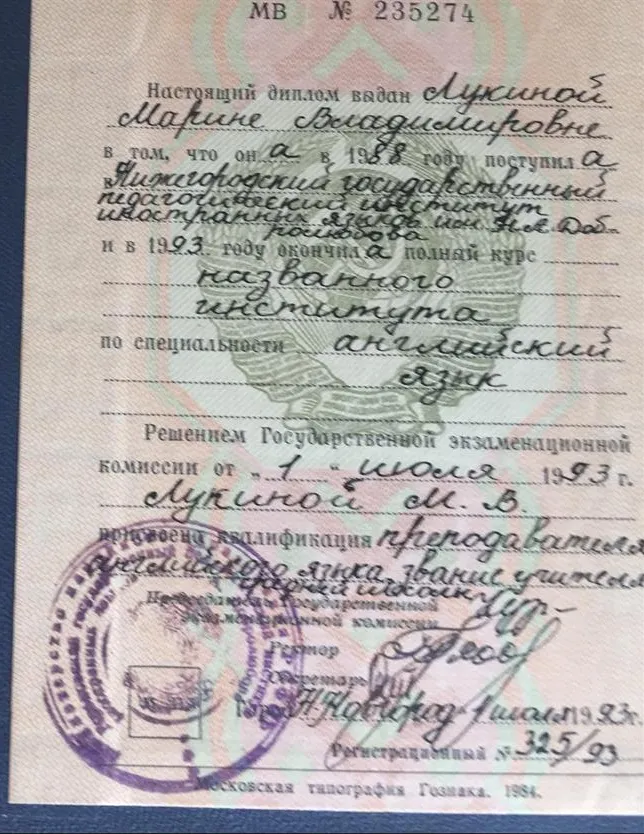 МВ № 235274
Настоящий диплом выдан Лукиной
Марине Владимировне
в том, что он а в 1988 году поступил а
в Нижегородский государственный
педагогический институт
иностранных языков им. Н.А. Доб-
ролюбова
и в 1993 году окончил а полный курс
названного
института
по специальности английский
язык
Решением Государственной экзаменационной
комиссии от „1“ июля 1993 г.
Лукиной М. В.
присвоена квалификация преподавателя
английского языка, звание учителя
средней школы
Председатель Государственной
экзаменационной комиссии
Ректор
Секретарь
Город Н. Новгород 1 июля 1993 г.
Регистрационный № 325/93
Московская типография Гознака. 1984.